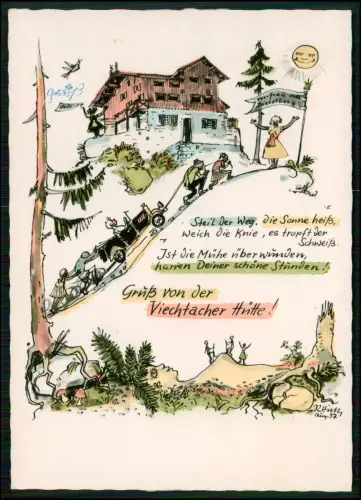 Steil der Weg, die Sonne heiß,
Weich die Knie, es tropft der
Schweiß.
Ist die Mühe überwunden,
harren Deiner schöne Stunden!
Gruß von der
Viechtacher Hütte!